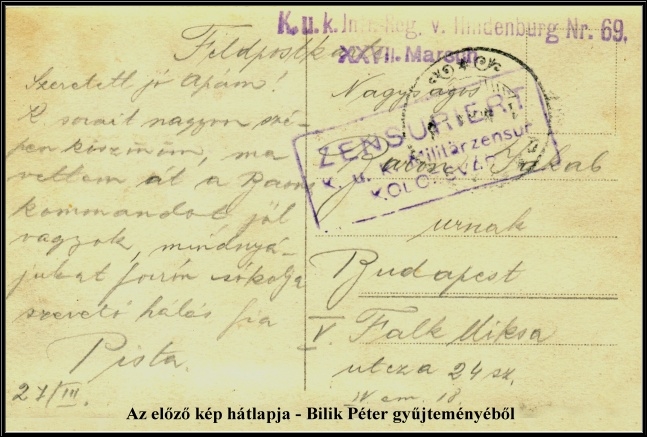 K. u. k. Inft. Reg. v. Hindenburg Nr. 69.
XXVII. Marsch
Feldpostkarte
Szeretett jó Apám!
K. sorait nagyon szé-
pen köszönöm, ma
vettem át a
kommandot, jól
vagyok, mindnyá-
jukat forrón csókolja
szerető hálás fia
Pista.
27/III.
ZENSURIERT
K. u. k. Militärzensur
Nagyságos
Jakab
urnak
Budapest
V. Falk Miksa
utcza 24 sz.
Az előző kép hátlapja - Bilik Péter gyűjteményéből